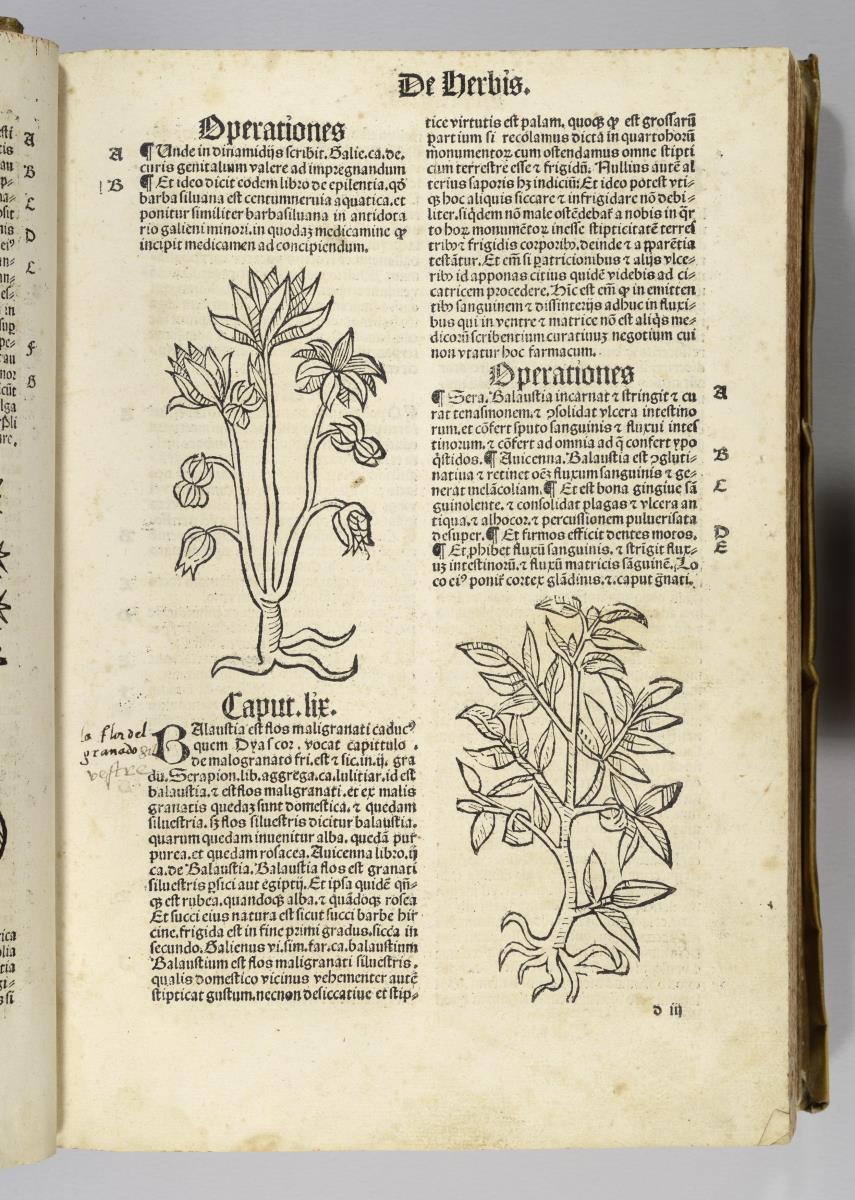 De Herbis.
Operationes
A ¶ Unde in dinamidijs scribit. Galie. ca. de.
curis genitalium valere ad impregnandum
B ¶ Et ideo dicit eodem libro de epilentia. qđ
barba siluana est centumneruia aquatica. et
ponitur similiter barbasiluana in antidota
rio galieni minori. in quodaʒ medicamine qꝫ
incipit medicamen ad concipiendum.
Caput. lix.
la flor del
granado
BAlaustia est flos maligranati caducꝰ
quem Dyascor. vocat capittulo.
de malogranato fri. est ⁊ sic. in. ij. gra
du. Serapion. lib. aggrega. ca. lulitiar. id est
balaustia. ⁊ est flos maligranati. et ex malis
granatis quedaʒ sunt domestica. ⁊ quedam
siluestria. sʒ flos siluestris dicitur balaustia.
quarum quedam inuenitur alba. quedā pur
purea. et quedam rosacea. Auicenna libro. ij
ca. de Balaustia. Balaustia flos est granati
siluestris ꝑsici aut egiptij. Et ipsa quidē qñ-
qꝫ est rubea. quandoqꝫ alba. ⁊ quādoqꝫ rosea
Et succi eius natura est sicut succi barbe hir
cine. frigida est in fine primi gradus. sicca in
secundo. Galienus vi. sim. far. ca. balaustium
Balaustium est flos maligranati siluestris.
qualis domestico vicinus vehementer autē
stipticat gustum. necnon desiccatiue et stip-
tice virtutis est palam. quoqꝫ qꝫ est grossarū
partium si recolamus dicta in quarto horū
monumentoꝝ cum ostendamus omne stipti
cum terrestre esse ⁊ frigidū. Nullius autē al
terius saporis hʒ indiciū. Et ideo potest vti-
qꝫ hoc aliquis siccare ⁊ infrigidare nō debi-
liter. siqdem nō male ostēdebat a nobis in qr
to hoꝝ monumētoꝝ inesse stipticitatē terres
tribꝰ ⁊ frigidis corporibꝰ. deinde ⁊ apparētia
testātur. Et em si patricionibus ⁊ alijs vlce-
ribꝰ id apponas citius quidē videbis ad ci-
catricem procedere. Hīc est em qꝫ in emitten
tibꝰ sanguinem ⁊ dissinterijs adhuc in fluxi-
bus qui in ventre ⁊ matrice nō est aliqs me-
dicorū scribentium curatiuuʒ negotium cui
non vtatur hoc farmacum.
Operationes
A ¶ Sera. Balaustia incarnat ⁊ stringit ⁊ cu
rat tenasmonem. ⁊ ꝯsolidat vlcera intestino
rum. et cōfert sputo sanguinis ⁊ fluxui intes
tinorum. ⁊ cōfert ad omnia ad q̄ confert ypo
B q̄stidos. ¶ Auicenna. Balaustia est ꝯgluti-
natiua ⁊ retinet oēʒ fluxum sanguinis ⁊ ge-
C nerat melācoliam. ¶ Et est bona gingiue sā
guinolente. ⁊ consolidat plagas ⁊ vlcera an
tiqua. ⁊ alhocor. ⁊ percussionem puluerisata
D desuper. ¶ Et firmos efficit dentes motos.
E ¶ Et ꝓhibet fluxū sanguinis. ⁊ strīgit flux-
uʒ intestinorū. ⁊ fluxū matricis sāguinē. Lo
co eiꝰ ponit cortex glādinis. ⁊. caput gnati.
d iij